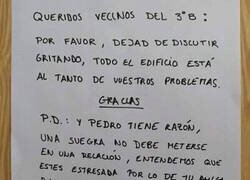 QUERIDOS VECINOS DEL 3ºB:
POR FAVOR, DEJAD DE DISCUTIR
GRITANDO, TODO EL EDIFICIO ESTÁ
AL TANTO DE VUESTROS PROBLEMAS.
GRACIAS
P.D.: Y PEDRO TIENE RAZÓN,
UNA SUEGRA NO DEBE METERSE
EN UNA RELACIÓN, ENTENDEMOS QUE
ESTES ESTRESADA POR LO DE TU